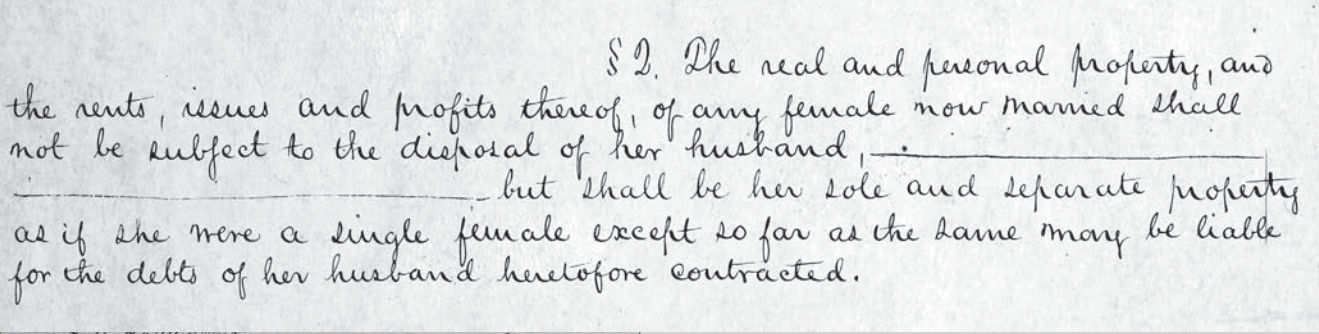 § 2. The real and personal property, and
the rents, issues and profits thereof, of any female now married shall
not be subject to the disposal of her husband,
but shall be her sole and separate property
as if she were a single female except so far as the same may be liable
for the debts of her husband heretofore contracted.